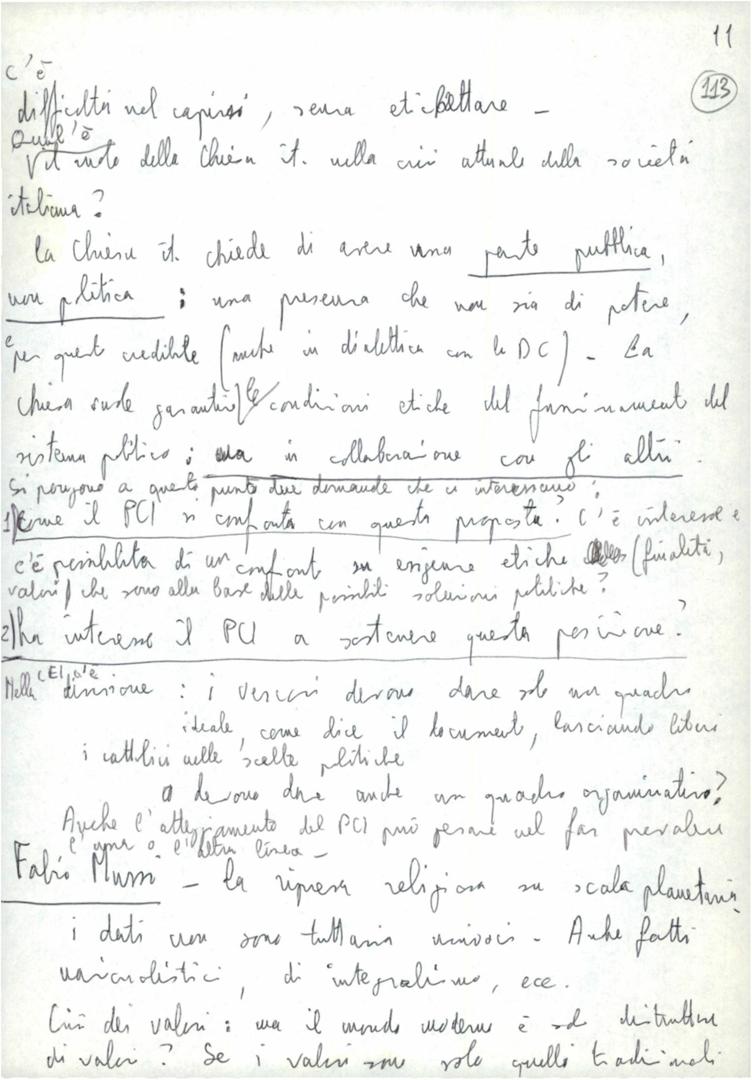 11
113
C'è
difficoltà nel capirsi, senza etichettare –
Qual'è
il ruolo della Chiesa it. nella crisi attuale della società
italiana?
la Chiesa it. chiede di avere una parte pubblica,
non politica ; una presenza che non sia di potere,
e per questo credibile (anche in dialettica con la DC) – La
chiesa vuole garantire le condizioni etiche del funzionamento del
sistema politico ; ma in collaborazione con gli altri.
Si pongono a questo punto due domande che ci interessano:
1) Come il PCI si confronta con questa proposta? C'è interesse e
c'è possibilità di un confronto su esigenze etiche (finalità,
valori) che sono alla base delle possibili soluzioni politiche?
2) ha interesse il PCI a sostenere questa posizione?
Nella CEI c'è divisione : i vescovi devono dare solo un quadro
ideale, come dice il documento, lasciando liberi
i cattolici nelle scelte politiche
o devono dare anche un quadro organizzativo?
Anche l'atteggiamento del PCI può pesare nel far prevalere
l'una o l'altra linea –
Fabio Mussi – la ripresa religiosa su scala planetaria,
i dati non sono tuttavia univoci – Anche fatti
di integralismo, ecc.
Crisi dei valori : ma il mondo moderno è sol distruttore
di valori? Se i valori sono solo quelli tradizionali